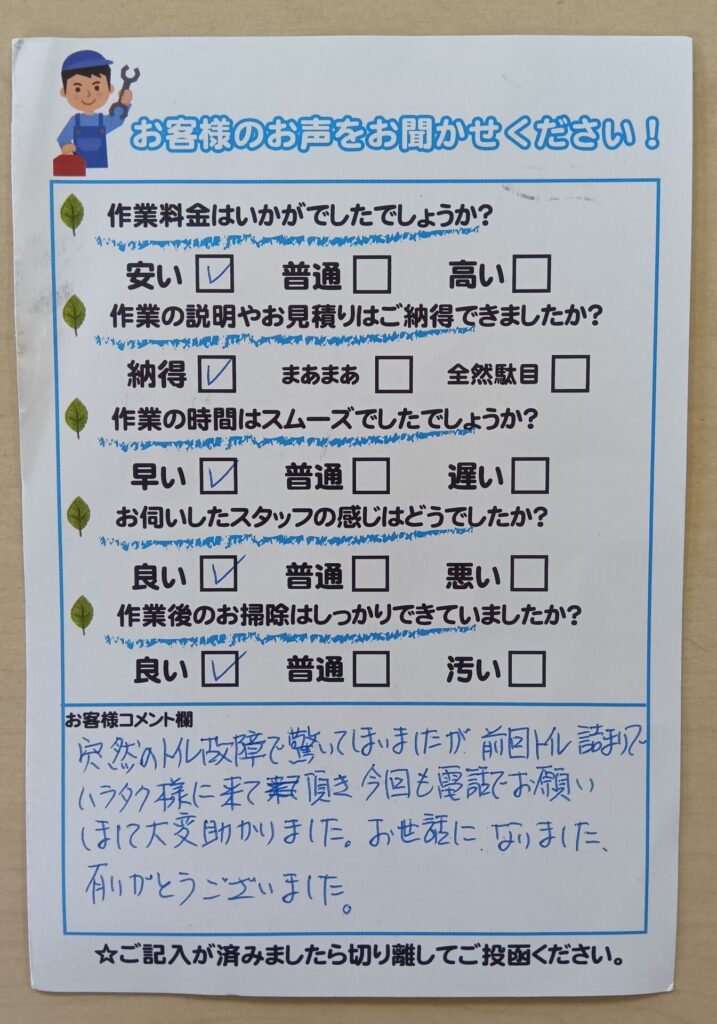 お客様のお声をお聞かせください！
作業料金はいかがでしたでしょうか?
安い ☑ 普通 □ 高い □
作業の説明やお見積りはご納得できましたか?
納得 ☑ まあまあ □ 全然駄目 □
作業の時間はスムーズでしたでしょうか?
早い ☑ 普通 □ 遅い □
お伺いしたスタッフの感じはどうでしたか?
良い ☑ 普通 □ 悪い □
作業後のお掃除はしっかりできていましたか?
良い ☑ 普通 □ 汚い □
お客様コメント欄
突然のトイレ故障で驚いてしまいましたが 前回トイレ詰まりで
ハラタク様に来て頂き 今回も電話でお願い
しまして大変助かりました。お世話に なりました、
有りがとうございました。
☆ご記入が済みましたら切り離してご投函ください。